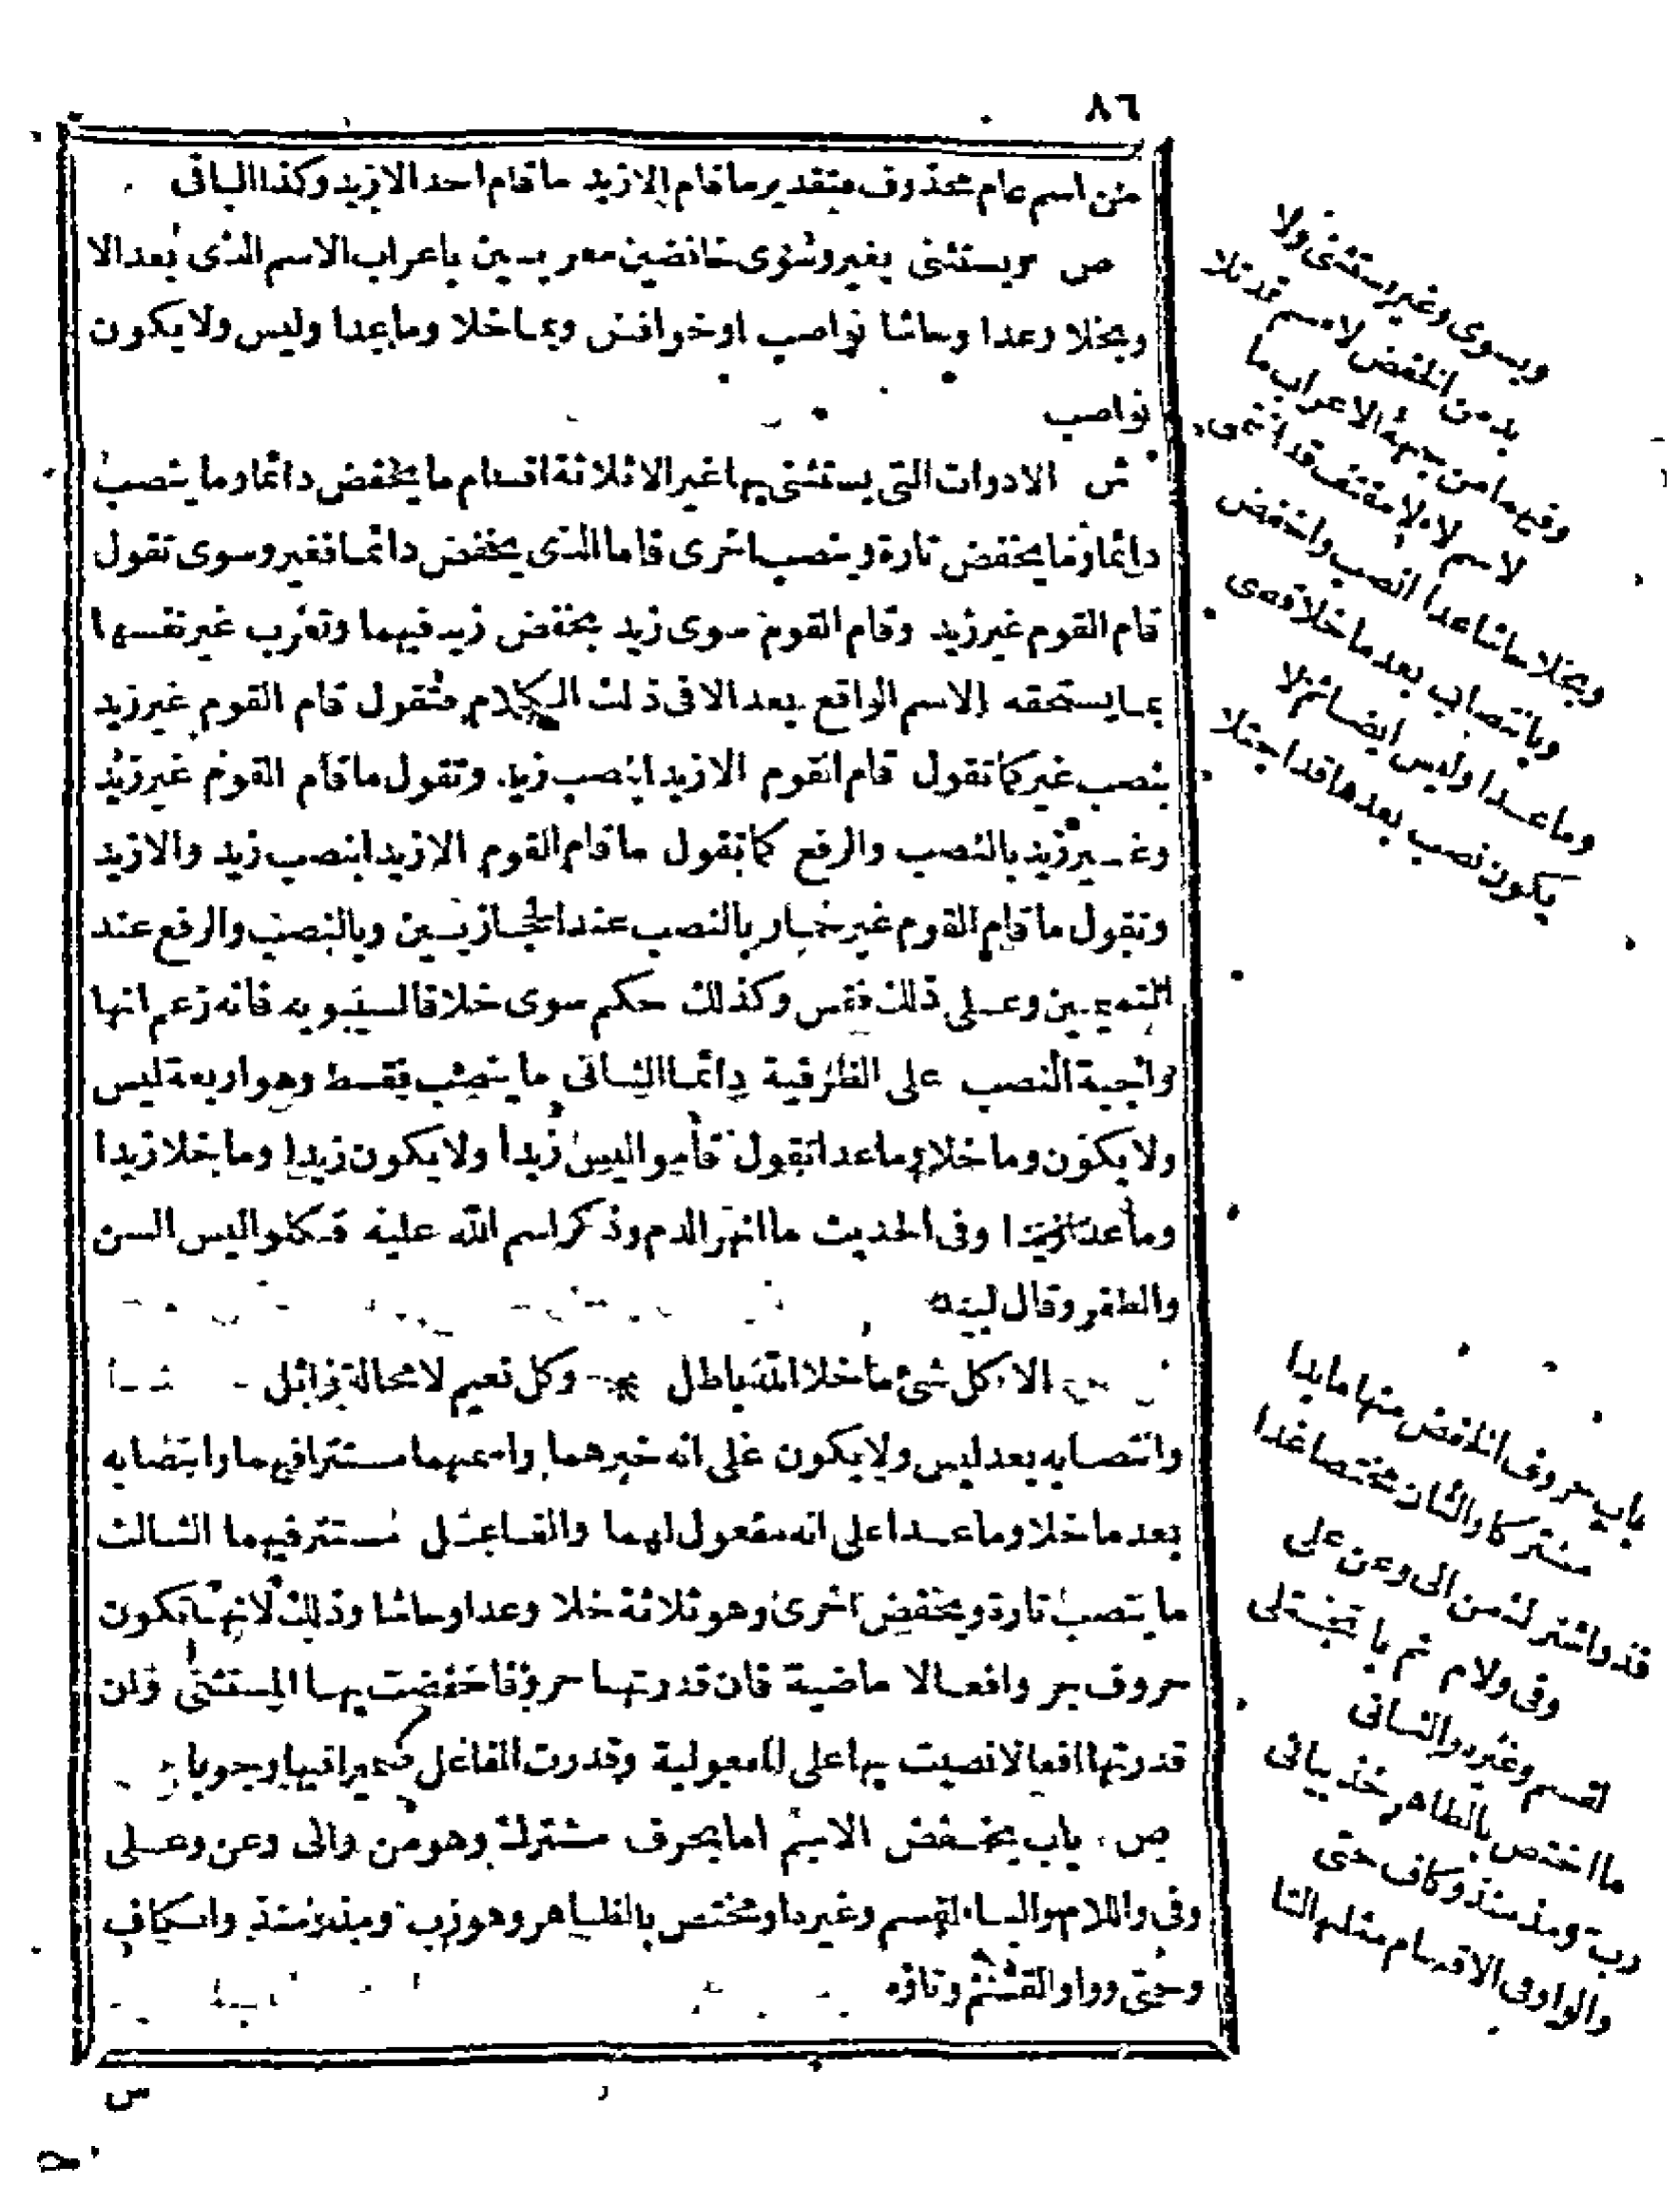 ٨٦
من اسم عام محذوف فتقدير ما قام الا زيد ما قام احد الا زيد وكذا الباقى
ص ويستثنى بغير وسوى خافضين معربين باعراب الاسم الذى بعد الا
وبخلا وعدا وحاشا نواصب او خوافض وبما خلا وما عدا وليس ولا يكون
نواصب
ش الادوات التى يستثنى بها غير الا ثلاثة اقسام ما يخفض دائما وما ينصب
دائما وما يخفض تارة وينصب اخرى فاما الذى يخفض دائما فغير وسوى تقول
قام القوم غير زيد وقام القوم سوى زيد بخفض زيد فيهما وتعرب غير نفسها
بما يستحقه الاسم الواقع بعد الا فى ذلك الكلام فتقول قام القوم غير زيد
بنصب غير كما تقول قام القوم الا زيدا بنصب زيد وتقول ما قام القوم غير زيد
وغير زيد بالنصب والرفع كما تقول ما قام القوم الا زيدا بنصب زيد والا زيد
وتقول ما قام القوم غير حمار بالنصب عند الحجازيين وبالنصب والرفع عند
التميميين وعلى ذلك فقس وكذلك حكم سوى خلافا لسيبويه فانه زعم انها
واجبة النصب على الظرفية دائما الثانى ما ينصب فقط وهو اربعة ليس
ولا يكون وما خلا وما عدا تقول قاموا ليس زيدا ولا يكون زيدا وما خلا زيدا
وما عدا زيدا وفى الحديث ما انهر الدم وذكر اسم الله عليه فكلوا ليس السن
والظفر وقال لبيد
الا كل شئ ما خلا الله باطل * وكل نعيم لا محالة زائل
وانتصابه بعد ليس ولا يكون على انه خبرهما واسمهما مستتر فيهما وانتصابه
بعد ما خلا وما عدا على انه مفعول لهما والفاعل مستتر فيهما الثالث
ما ينصب تارة ويخفض اخرى وهو ثلاثة خلا وعدا وحاشا وذلك لانها تكون
حروف جر وافعالا ماضية فان قدرتها حروفا خفضت بها المستثنى وان
قدرتها افعالا نصبت بها على المفعولية وقدرت الفاعل ضميرا فيها وجوبا
ص باب يخفض الاسم اما بحرف مشترك وهو من والى وعن وعلى
وفى واللام والباء للقسم وغيره او مختص بالظاهر وهو رب ومذ ومنذ والكاف
وحتى وواو القسم وتاؤه
س
وبسوى وغير يستثنى ولا
بد من الخفض لاسم قد تلا
وفيهما من جهة الاعراب ما
لاسم لالا مقتف قد انتمى
وبخلا حاشا عدا انصب واخفض
وبانتصاب بعد ما خلا قضى
وما عدا وليس ايضا ثم لا
يكون نصب بعدها قد اجتلا
باب حروف الخفض منها ما بدا
مشتركا والثان مختصا غدا
قد واشترك من الى وعن على
وفى ولام ثم با تجتلى
لقسم وغيره والثانى
ما اختص بالظاهر خذ بيانى
رب ومذ منذ وكاف حتى
والواو فى الاقسام مثلم التا